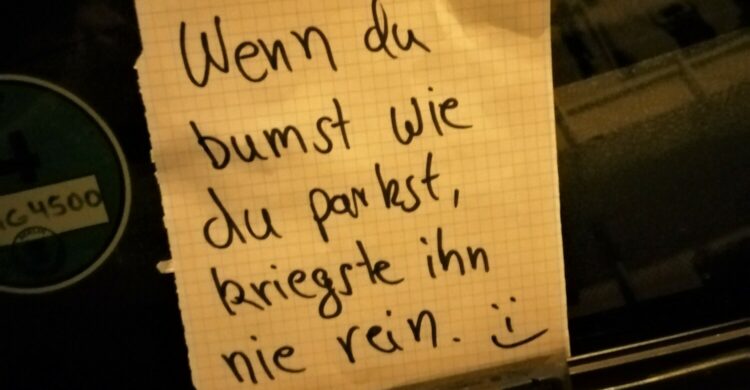 Wenn du
bumst wie
du parkst,
kriegste ihn
nie rein. :)
4
G4500